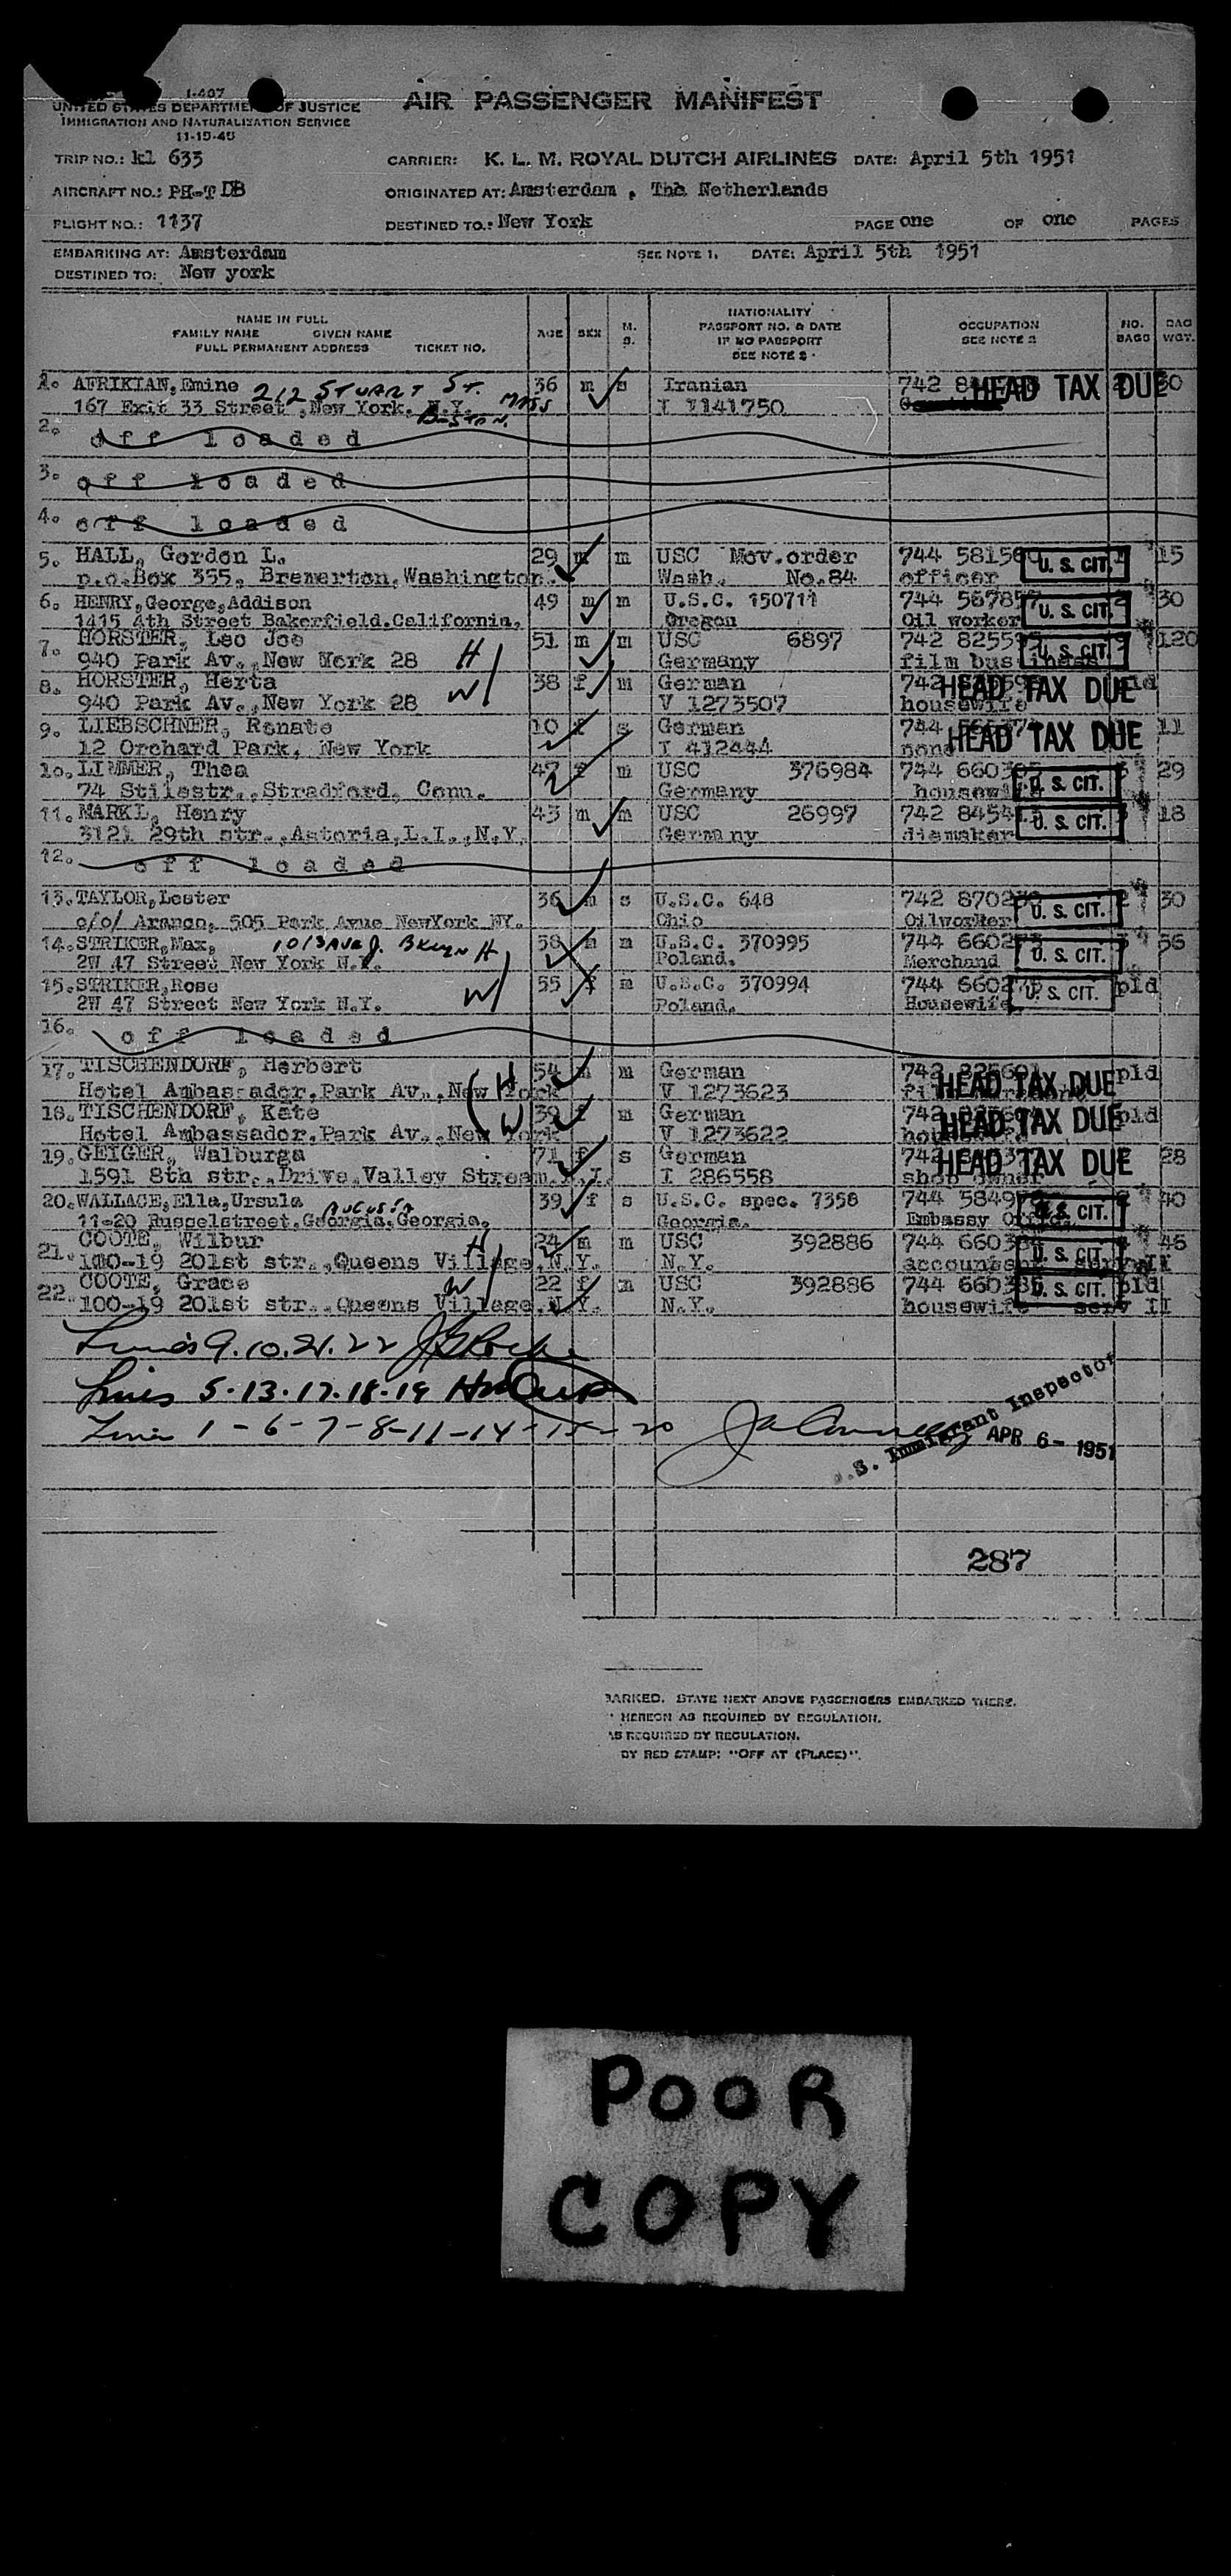 1-407
UNITED STATES DEPARTMENT OF JUSTICE
IMMIGRATION AND NATURALIZATION SERVICE
11-15-45
AIR PASSENGER MANIFEST
TRIP NO.: kl 633 CARRIER: K. L. M. ROYAL DUTCH AIRLINES DATE: April 5th 1951
AIRCRAFT NO.: PH-T DB ORIGINATED AT: Amsterdam , The Netherlands
FLIGHT NO.: 1137 DESTINED TO.: New York PAGE one OF one PAGES
EMBARKING AT: Amsterdam SEE NOTE 1. DATE: April 5th 1951
DESTINED TO: New york
NAME IN FULL
FAMILY NAME GIVEN NAME
FULL PERMANENT ADDRESS TICKET NO.
AGE SEX M. S.
NATIONALITY
PASSPORT NO. & DATE
IF NO PASSPORT
SEE NOTE 2
OCCUPATION
SEE NOTE 3
NO. BAGS
BAG WGT.
1. AFRIKIAN, Emine 212 STUART ST. 36 m s Iranian 742 HEAD TAX DUE
167 Exit 33 Street ,New York. N.Y. BOSTON. MASS I 1141750
2. off loaded
3. off loaded
4. off loaded
5. HALL, Gordon L. 29 m m USC Mov.order 744 58156 U. S. CIT. 15
p.o.Box 355, Bremerton,Washington. Wash. No.84 officer
6. HENRY,George,Addison 49 m m U.S.C. 150711 744 56785 U. S. CIT. 30
1415 4th Street Bakerfield.California. Oregon Oil worker
7. HORSTER, Leo Joe H 51 m m USC 6897 742 8255 U. S. CIT. 120
940 Park Av.,New York 28 Germany film business
8. HORSTER, Herta W 38 f m German 742 HEAD TAX DUE
940 Park Av.,New York 28 V 1273507 housewife
9. LIEBSCHNER, Renate 10 f s German 744 HEAD TAX DUE 11
12 Orchard Park, New York I 412444 none
10. LIMMER, Thea 47 f m USC 376984 744 6603 U. S. CIT. 29
74 Stilestr.,Stradford, Conn. Germany housewife
11. MARKL, Henry 43 m m USC 26997 742 8454 U. S. CIT. 18
3121 29th str.,Astoria,L.I.,N.Y. Germany diemaker
12. off loaded
13. TAYLOR,Lester 36 m s U.S.C. 648 742 8702 U. S. CIT. 30
c/o/ Aramco, 505 Park Avue NewYork NY. Ohio Oilworker
14. STRIKER,Max, 1013 AVE J. BKLYN H 58 m m U.S.C. 370995 744 6602 U. S. CIT. 56
2W 47 Street New York N.Y. Poland. Merchand
15. STRIKER,Rose W 55 f m U.S.C. 370994 744 6602 U. S. CIT. pld
2W 47 Street New York N.Y. Poland. Housewife
16. off loaded
17. TISCHENDORF, Herbert H 54 m m German 742 HEAD TAX DUE pld
Hotel Ambassador,Park Av.,New York V 1273623
18. TISCHENDORF, Kate W 39 f m German 742 HEAD TAX DUE pld
Hotel Ambassador,Park Av.,New York V 1273622
19. GEIGER, Walburga 71 f s German 742 HEAD TAX DUE 28
1591 8th str.,Drive,Valley Stream.N.I. I 286558 shop owner
20. WALLACE,Ella,Ursula AUGUSTA 39 f s U.S.C. spec. 7358 744 5849 U. S. CIT. 40
11-20 Russelstreet,Georgia,Georgia. Georgia. Embassy
21. COOTE, Wilbur H 24 m m USC 392886 744 6603 U. S. CIT. 46
100-19 201st str.,Queens Village,N.Y. N.Y. accountant serv II
22. COOTE, Grace W 22 f m USC 392886 744 6603 U. S. CIT. pld
100-19 201st str.,Queens Village,N.Y. N.Y. housewife serv II
Lines 9.10.21.22
Lines 5-13-17-18-19
Lines 1-6-7-8-11-14-15-20
U.S. Immigrant Inspector
APR 6- 1951
287
BARKED. STATE NEXT ABOVE PASSENGERS EMBARKED THERE.
HEREON AS REQUIRED BY REGULATION.
AS REQUIRED BY REGULATION.
BY RED STAMP: "OFF AT (PLACE)".
POOR
COPY